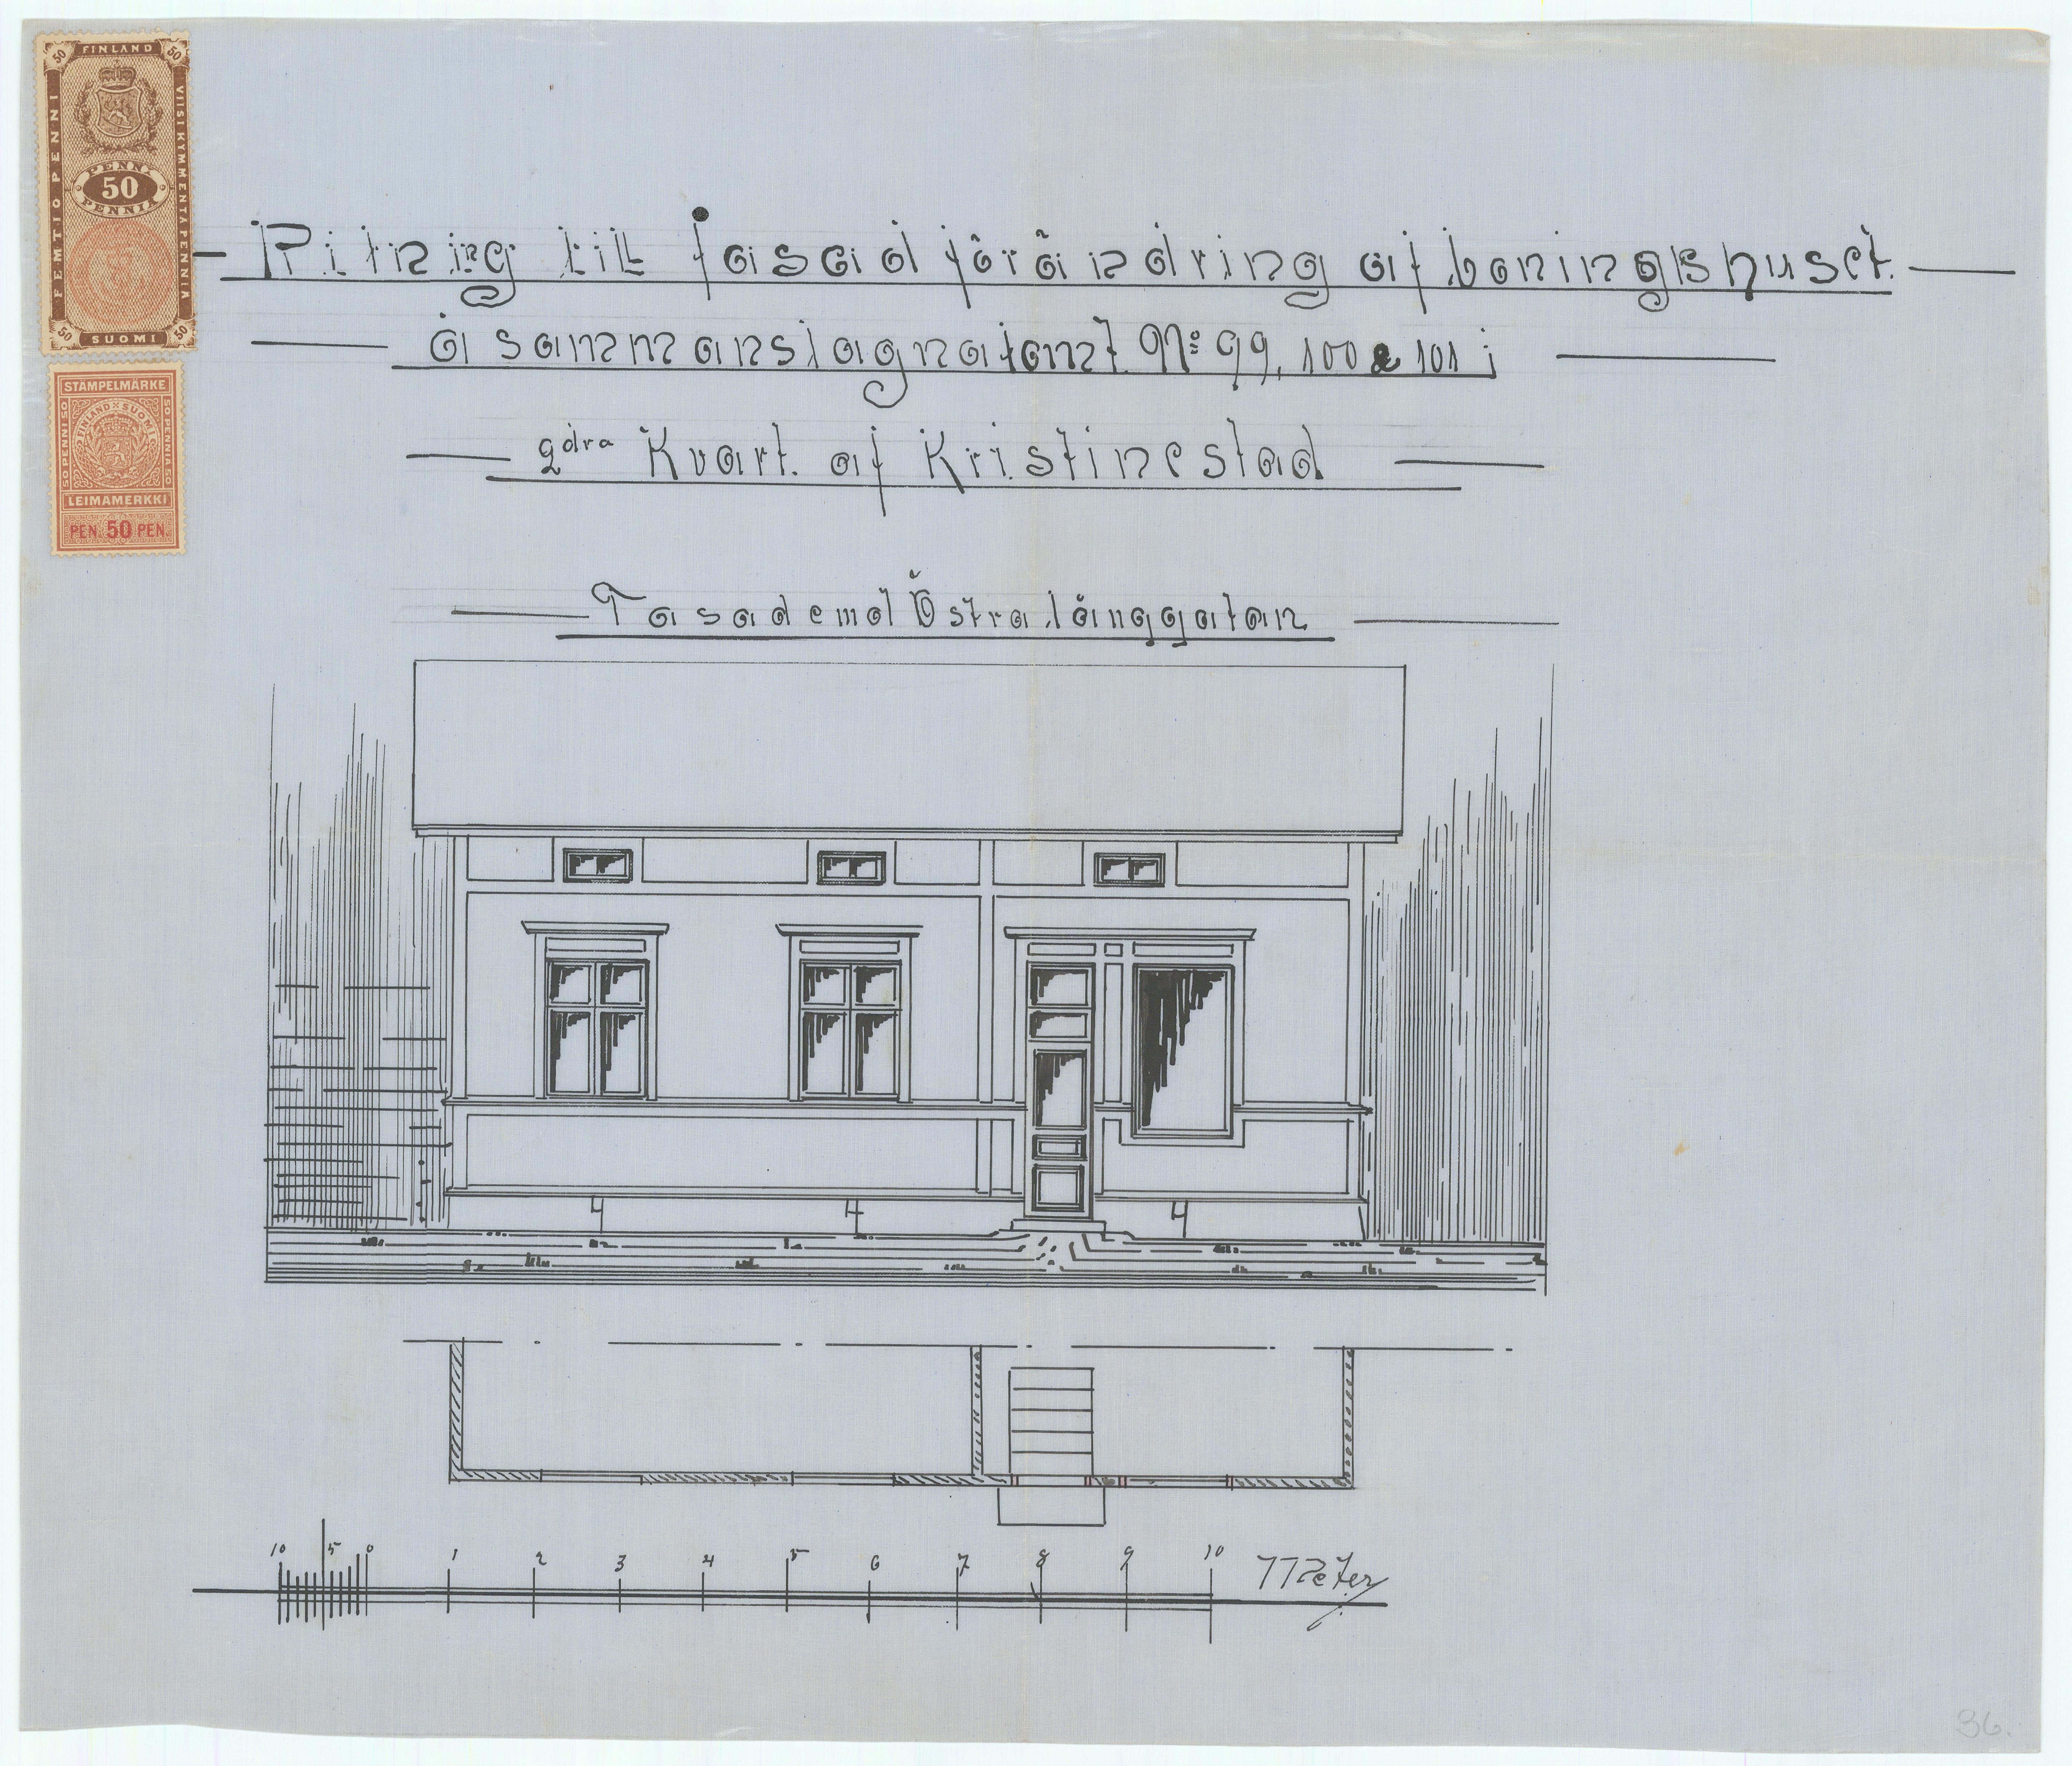 50 FINLAND 50
FEMTIO PENNI
VIISIKYMMENTÄ PENNIÄ
PENNI
50
PENNIÄ
50 SUOMI 50
STÄMPELMÄRKE
FINLAND SUOMI
50 PENNI 50
50 PENNIÄ 50
LEIMAMERKKI
PEN. 50 PEN.
Ritning till fasadförändring af boningshuset
å sammanslagna tomt. No: 99, 100 & 101 i
2dra Kvart. af Kristinestad
Fasad emot Östra långgatan
10 5 0 1 2 3 4 5 6 7 8 9 10 Meter
36.